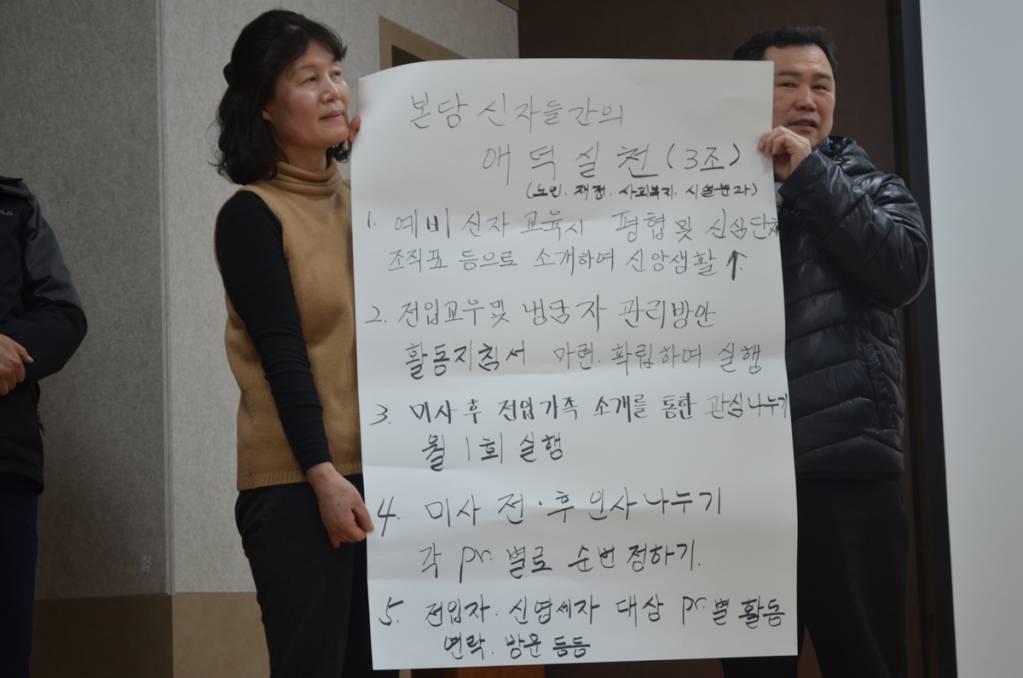 본당 신자들간의
애덕실천 (3조)
(노인. 재정. 사회복지. 시설분과)
1. 예비 신자 교육시 평협 및 신심단체
조직표 등으로 소개하여 신앙생활 ↑.
2. 전입교우 및 냉담자 관리방안
활동지침서 마련. 확립하여 실행
3. 미사 후 전입가족 소개를 통한 관심나누기
월 1회 실행
4. 미사 전·후 인사나누기
각 pr. 별로 순번 정하기.
5. 전입자. 신영세자 대상 pr. 별 활동
연락. 방문 등등